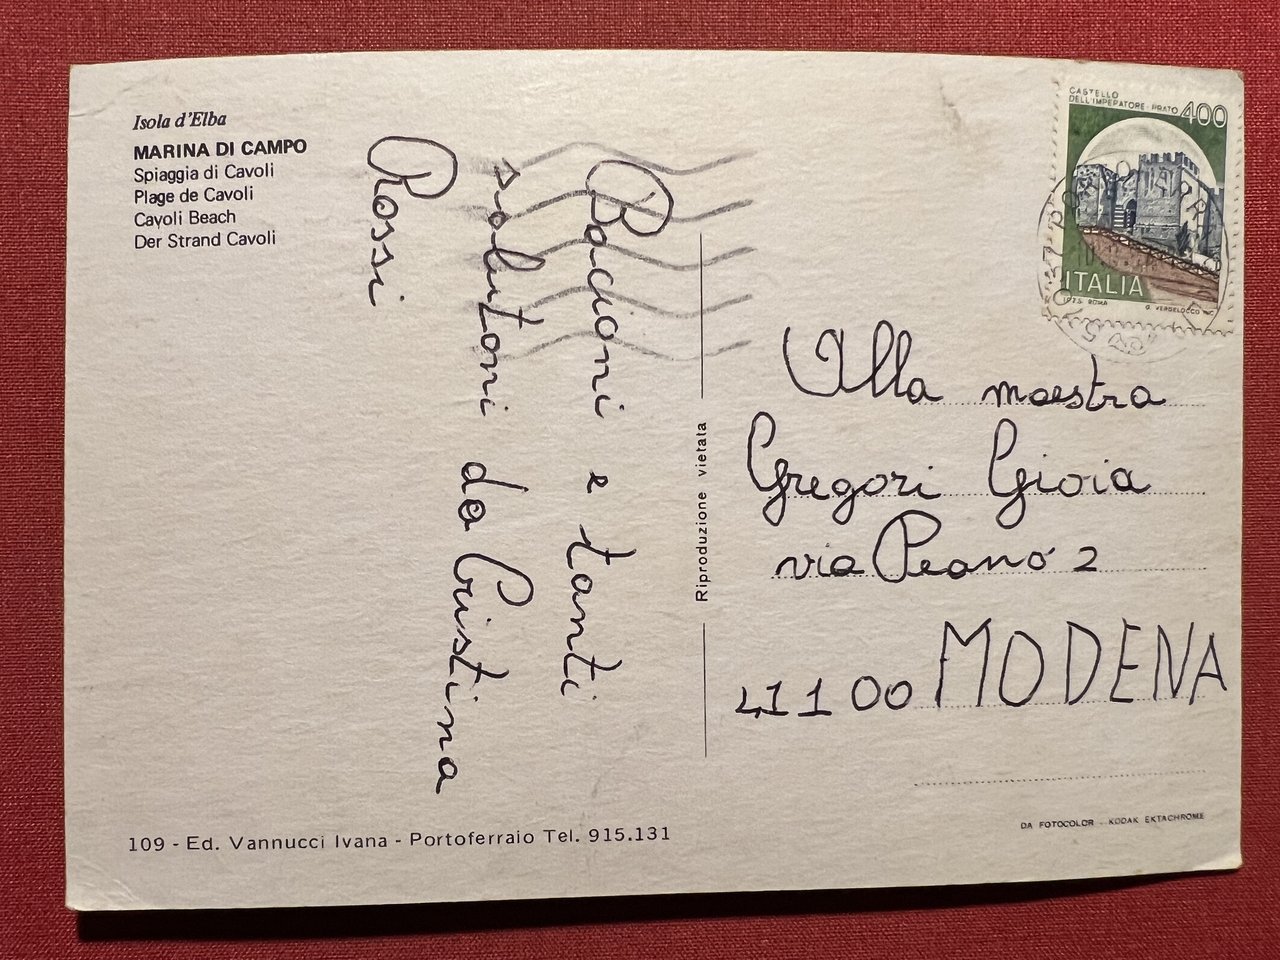 Isola d'Elba
MARINA DI CAMPO
Spiaggia di Cavoli
Plage de Cavoli
Cavoli Beach
Der Strand Cavoli
Bacioni e tanti
salutoni da Cristina
Rossi
109 - Ed. Vannucci Ivana - Portoferraio Tel. 915.131
Riproduzione vietata
CASTELLO
DELL'IMPERATORE - PRATO 400
ITALIA
I.P.Z.S. ROMA
G. VERDELOCCO INC.
Alla maestra
Gregori Gioia
via Peano 2
41100 MODENA
DA FOTOCOLOR - KODAK EKTACHROME